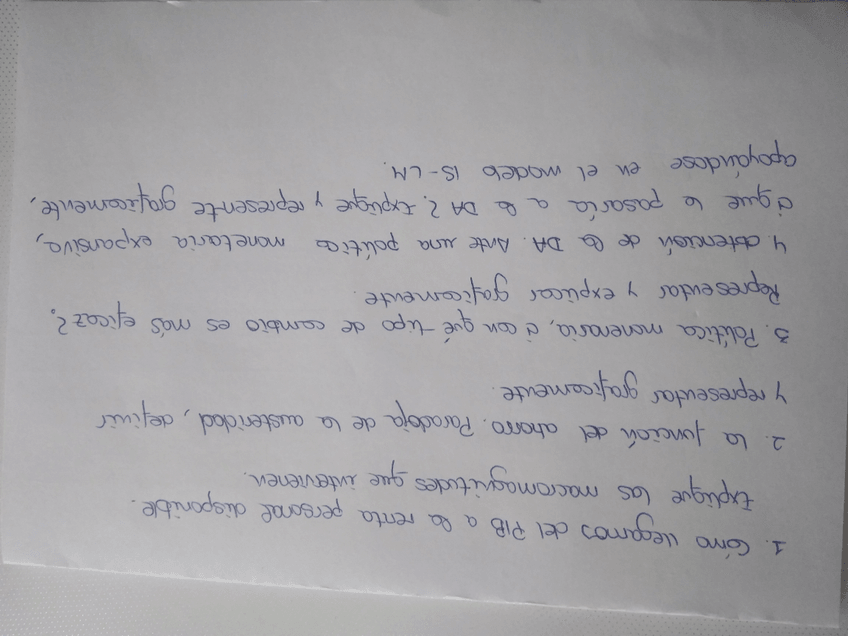 1. Cómo llegamos del PIB a la renta personal disponible.
Explique las macromagnitudes que intervienen.
2. La función del ahorro. Paradoja de la austeridad, definir
y representar graficamente.
3. Política monenaria, ¿con qué tipo de cambio es más eficaz?.
Representar y explicar graficamente.
4. obtención de la DA. Ante una política monetaria expansiva,
¿que le pasaría a la DA?. Explique y represente graficamente,
apoyándose en el modelo IS-LM.